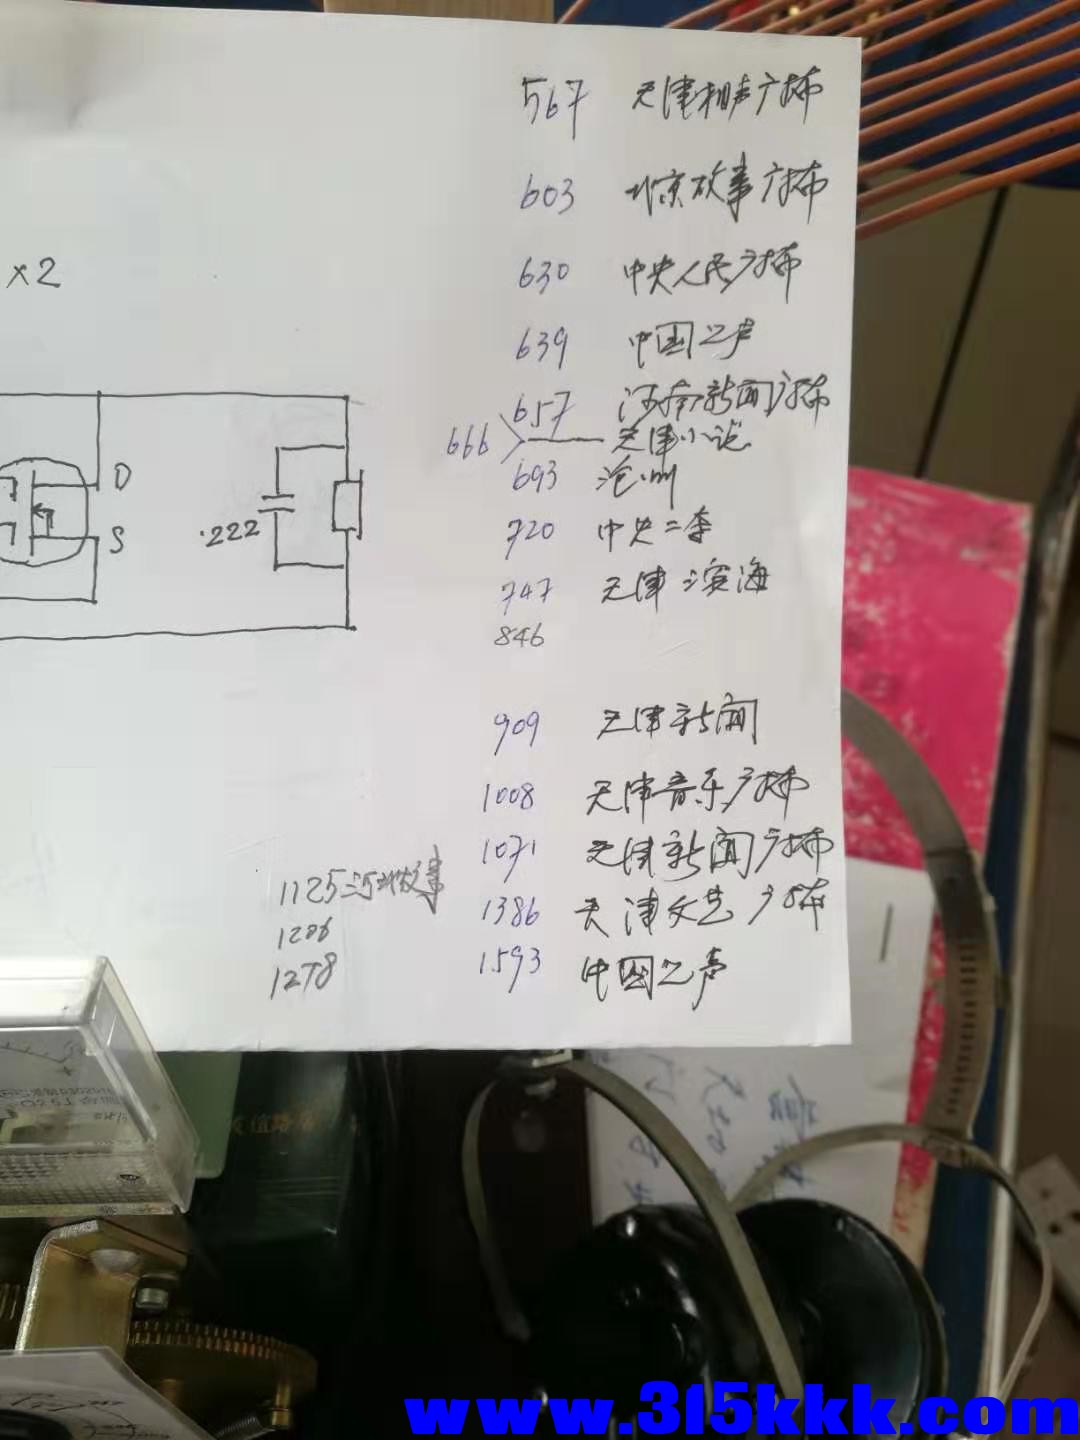 567 天津相声广播
603 北京故事广播
630 中央人民广播
×2
639 中国之声
657 河南新闻广播
666 天津小说
693 沧州
D
720 中央二套
.222
S
747 天津滨海
846
909 天津新闻
1008 天津音乐广播
1071 天津新闻广播
1125 河北故事
1386 天津文艺广播
1206
1593 中国之声
1278
www.315kkk.com